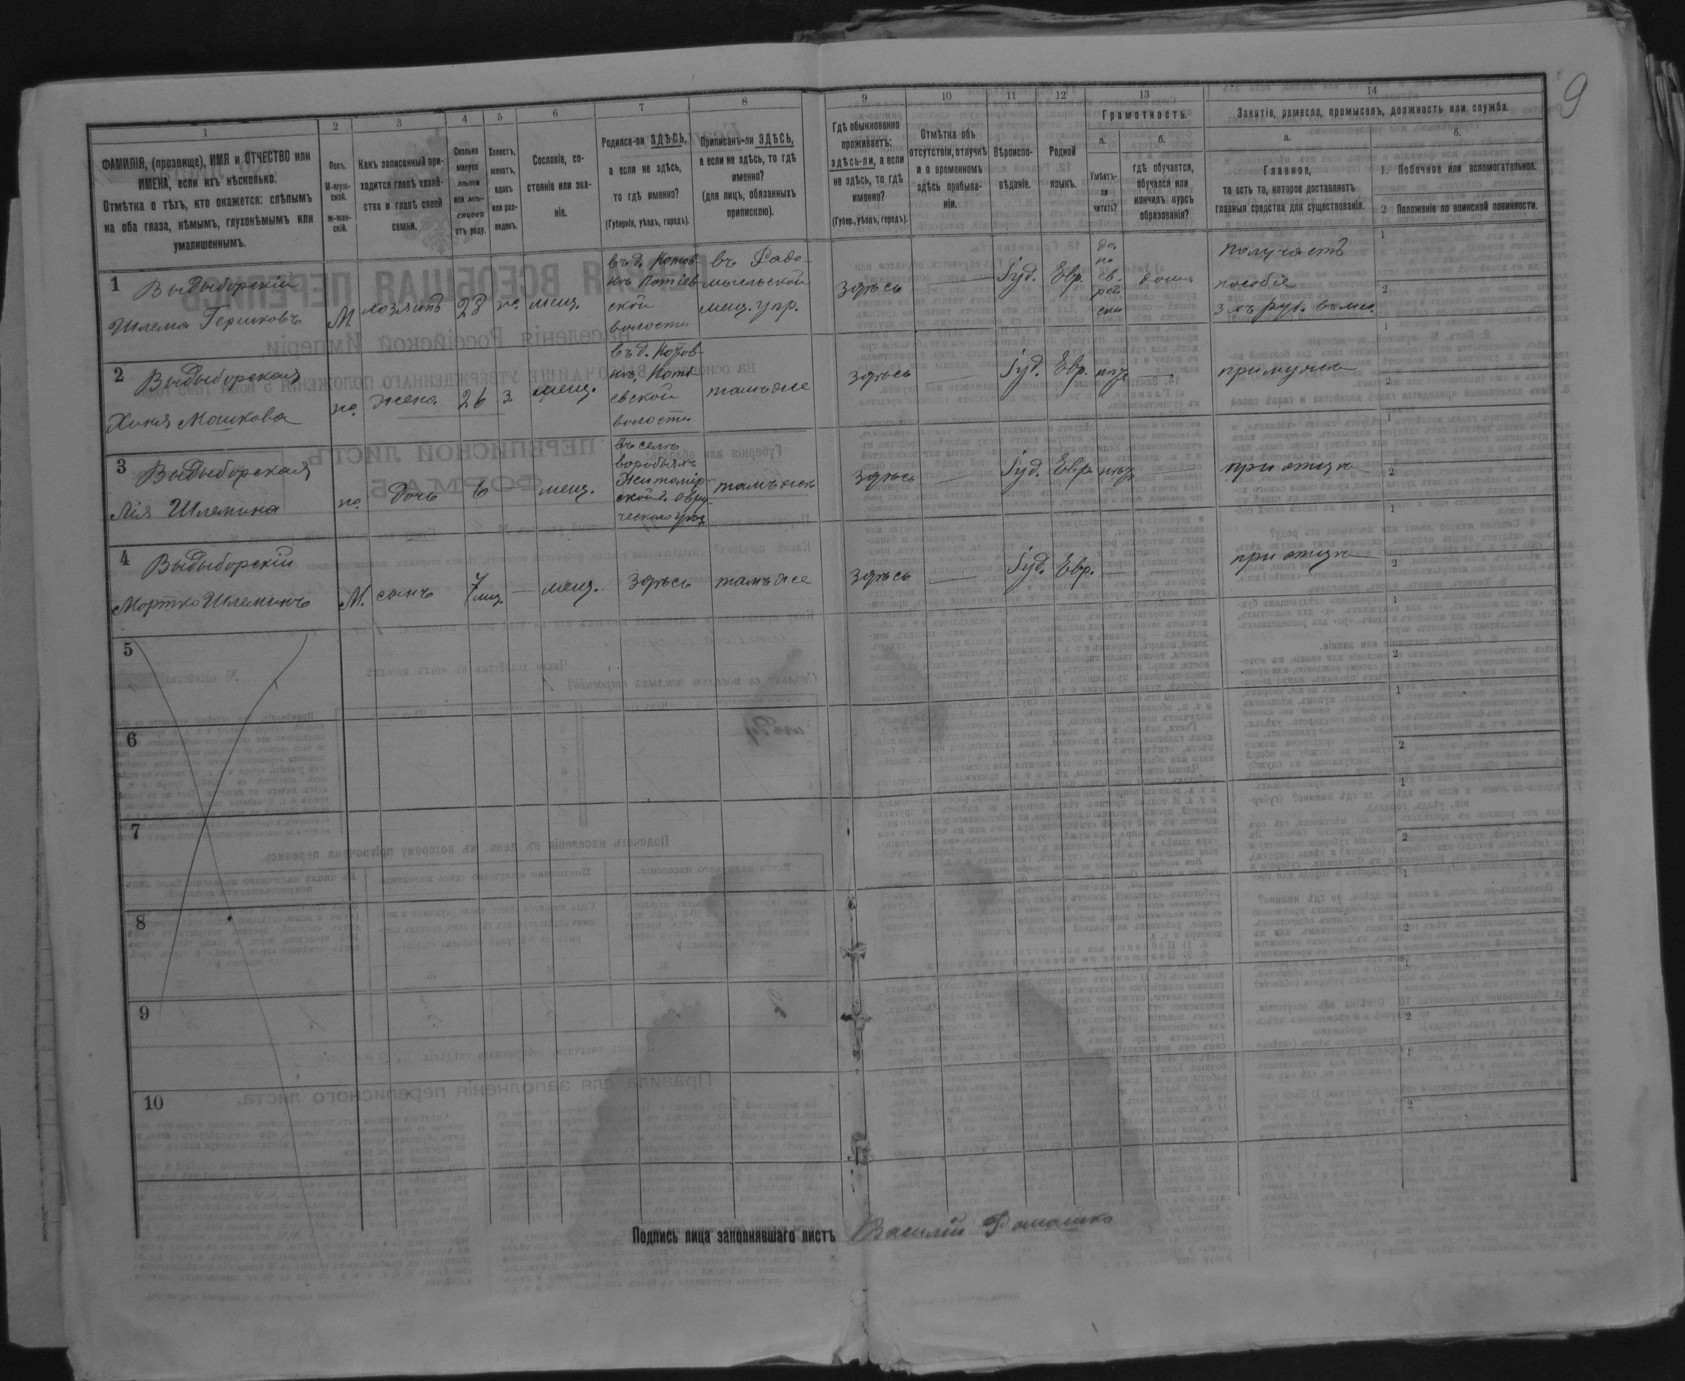 9
1 2 3 4 5 6 7 8 9 10 11 12 13 14
ФАМИЛІЯ, (прозвище), ИМЯ и ОТЧЕСТВО или
ИМЕНА, если ихъ нѣсколько.
Отмѣтка о тѣхъ, кто окажется: слѣпымъ
на оба глаза, нѣмымъ, глухонѣмымъ или
умалишеннымъ.
Полъ.
М-муж-
ской.
ж-жен-
скій.
Какъ записанный при-
ходится главѣ хозяй-
ства и главѣ своей
семьи.
Сколько
минуло
лѣтъ
или мѣ-
сяцевъ
отъ роду.
Холостъ,
женатъ,
вдовъ
или раз-
веденъ.
Сословіе, со-
стояніе или зва-
ніе.
Родился-ли ЗДѢСЬ,
а если не здѣсь,
то гдѣ именно?
(Губернія, уѣздъ, городъ).
Приписанъ-ли ЗДѢСЬ,
а если не здѣсь, то гдѣ
именно?
(для лицъ, обязанныхъ
припискою).
Гдѣ обыкновенно
проживаетъ:
здѣсь-ли, а если
не здѣсь, то гдѣ
именно?
(Губерн., уѣздъ, городъ).
Отмѣтка объ
отсутствіи, отлучкѣ
и о временномъ
здѣсь пребыва-
ніи.
Вѣроиспо-
вѣданіе.
Родной
языкъ.
Грамотность.
а.
Умѣетъ-
ли
читать?
б.
гдѣ обучается,
обучался или
кончилъ курсъ
образованія?
Занятіе, ремесло, промыселъ, должность или служба.
а.
Главное,
то есть то, которое доставляетъ
главныя средства для существованія.
б.
1. Побочное или вспомогательное.
2 Положеніе по воинской повинности.
1 Выдыборскій
Шлема Гершковъ
М хозяинъ 28 ж. мѣщ.
въ д. Котов-
Потіев-
ской
волости
въ Радо-
мысльской
мещ. упр.
здѣсь — Іуд. Евр.
да
по
ев-
рей
ски
дома
получаетъ
пособіе
3 хъ руб. въ мѣс.
2 Выдыборская
Хиня Мошкова
ж. жена 26 з. мещ.
въ д. Котов-
Поті
евской
волости
тамъ же здѣсь — Іуд. Евр. нѣт — при мужѣ
3 Выдыборская
Лія Шлемина
ж. дочь 6 — мещ.
въ селѣ
воробьяхъ
Житомір-
ской г. Овру
ческого уѣз.
тамъ же здѣсь — Іуд. Евр. нѣт — при отцѣ
4 Выдыборскій
Мортко Шлеминъ
М. сынъ 7 мѣс. — мещ. здѣсь тамъ же здѣсь — Іуд. Евр. — — при отцѣ
5
6
7
8
9
10
Подпись лица заполнявшаго листъ Василій Ромашко